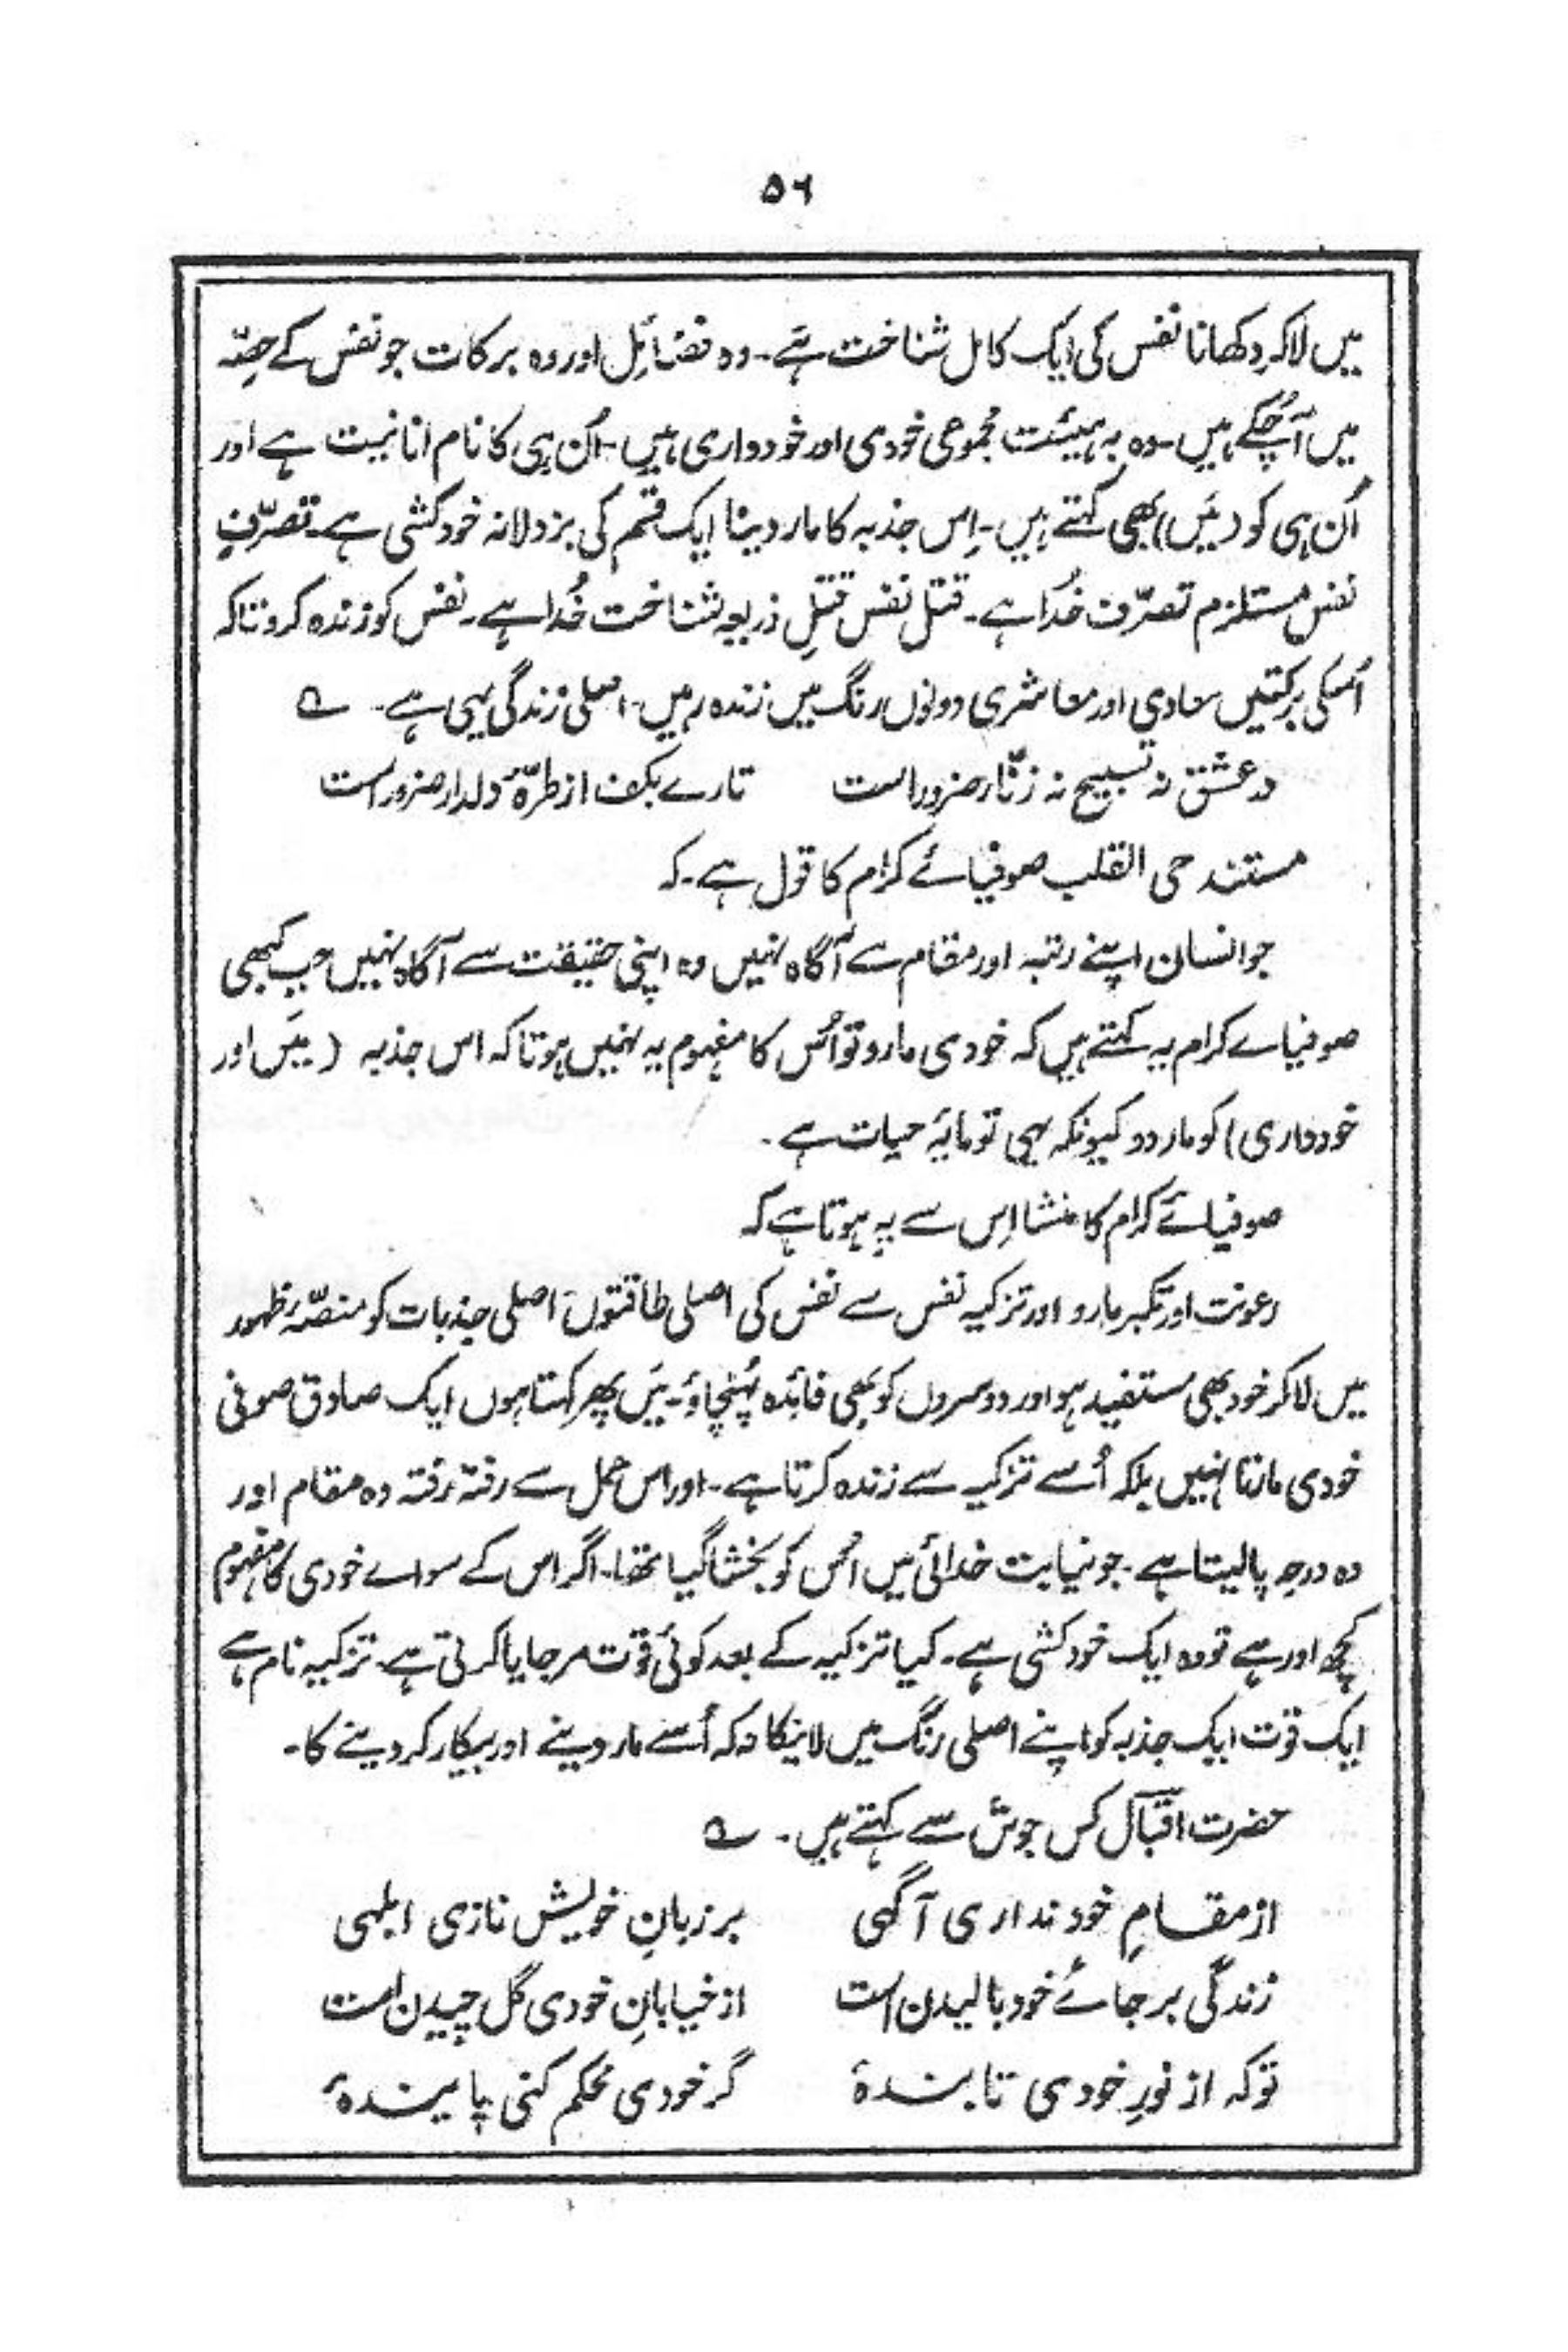 ۵۶
میں لاکر دکھانا نفس کی ایک کامل شناخت ہے۔ وہ فضائل اور وہ برکات جو نفس کے حصّہ
میں آچُکے ہیں۔ وہ بہ ہیئت مجموعی خودی اور خودداری ہیں۔ اُن ہی کا نام انانیت ہے اور
اُن ہی کو (میَں) بھی کہتے ہیں۔ اِس جذبہ کا مار دینا ایک قسم کی بزدلانہ خودکشی ہے۔ تصرّفِ
نفس مستلزم تصرّف خُدا ہے۔ قتل نفس قتلِ ذریعہ شناخت خُدا ہے۔ نفس کو زندہ کرو تاکہ
اُسکی برکتیں معادی اور معاشری دونوں رنگ میں زندہ رہیں۔ اصلی زندگی یہی ہے۔ ؎
در عشق نہ تسبیح نہ زنّار ضرور است تارے بکف از طرّہ دلدار ضرور است
مستند حی القلب صوفیائے کرام کا قول ہے۔ کہ
جو انسان اپنے رتبہ اور مقام سے آگاہ نہیں وہ اپنی حقیقت سے آگاہ نہیں جب کبھی
صوفیاے کرام یہ کہتے ہیں کہ خودی مارو تو اُس کا مفہوم یہ نہیں ہوتا کہ اس جذبہ (میَں اور
خودداری) کو مار دو کیونکہ یہی تو مایۂ حیات ہے۔
صوفیائے کرام کا منشا اِس سے یہ ہوتا ہے کہ
رعونت اور تکبر مارو اور تزکیہ نفس سے نفس کی اصلی طاقتوں اصلی جذبات کو منصّہ ظہور
میں لاکر خود بھی مستفید ہو اور دوسروں کو بھی فائدہ پہُنچاؤ۔ میَں پھر کہتا ہوں ایک صادق صوفی
خودی مارتا نہیں بلکہ اُسے تزکیہ سے زندہ کرتا ہے۔ اور اس عمل سے رفتہ رفتہ وہ مقام اور
وہ درجہ پالیتا ہے۔ جو نیابت خدائی میں اُس کو بخشا گیا تھا۔ اگر اس کے سواے خودی کا مفہوم
کچھ اور ہے تو وہ ایک خودکشی ہے۔ کیا تزکیہ کے بعد کوئی قوّت مرجایا کرتی ہے۔ تزکیہ نام ہے
ایک قوت ایک جذبہ کو اپنے اصلی رنگ میں لانیکا نہ کہ اُسے مار دینے اور بیکار کر دینے کا۔
حضرت اقبالؔ کس جوش سے کہتے ہیں۔ ؎
از مقامِ خود نداری آگہی بر زبانِ خویش نازی ابلہی
زندگی بر جائے خود بالیدن است از خیابانِ خودی گل چیدن است
تو کہ از نورِ خودی تابندۂ گر خودی محکم کنی پایندۂ